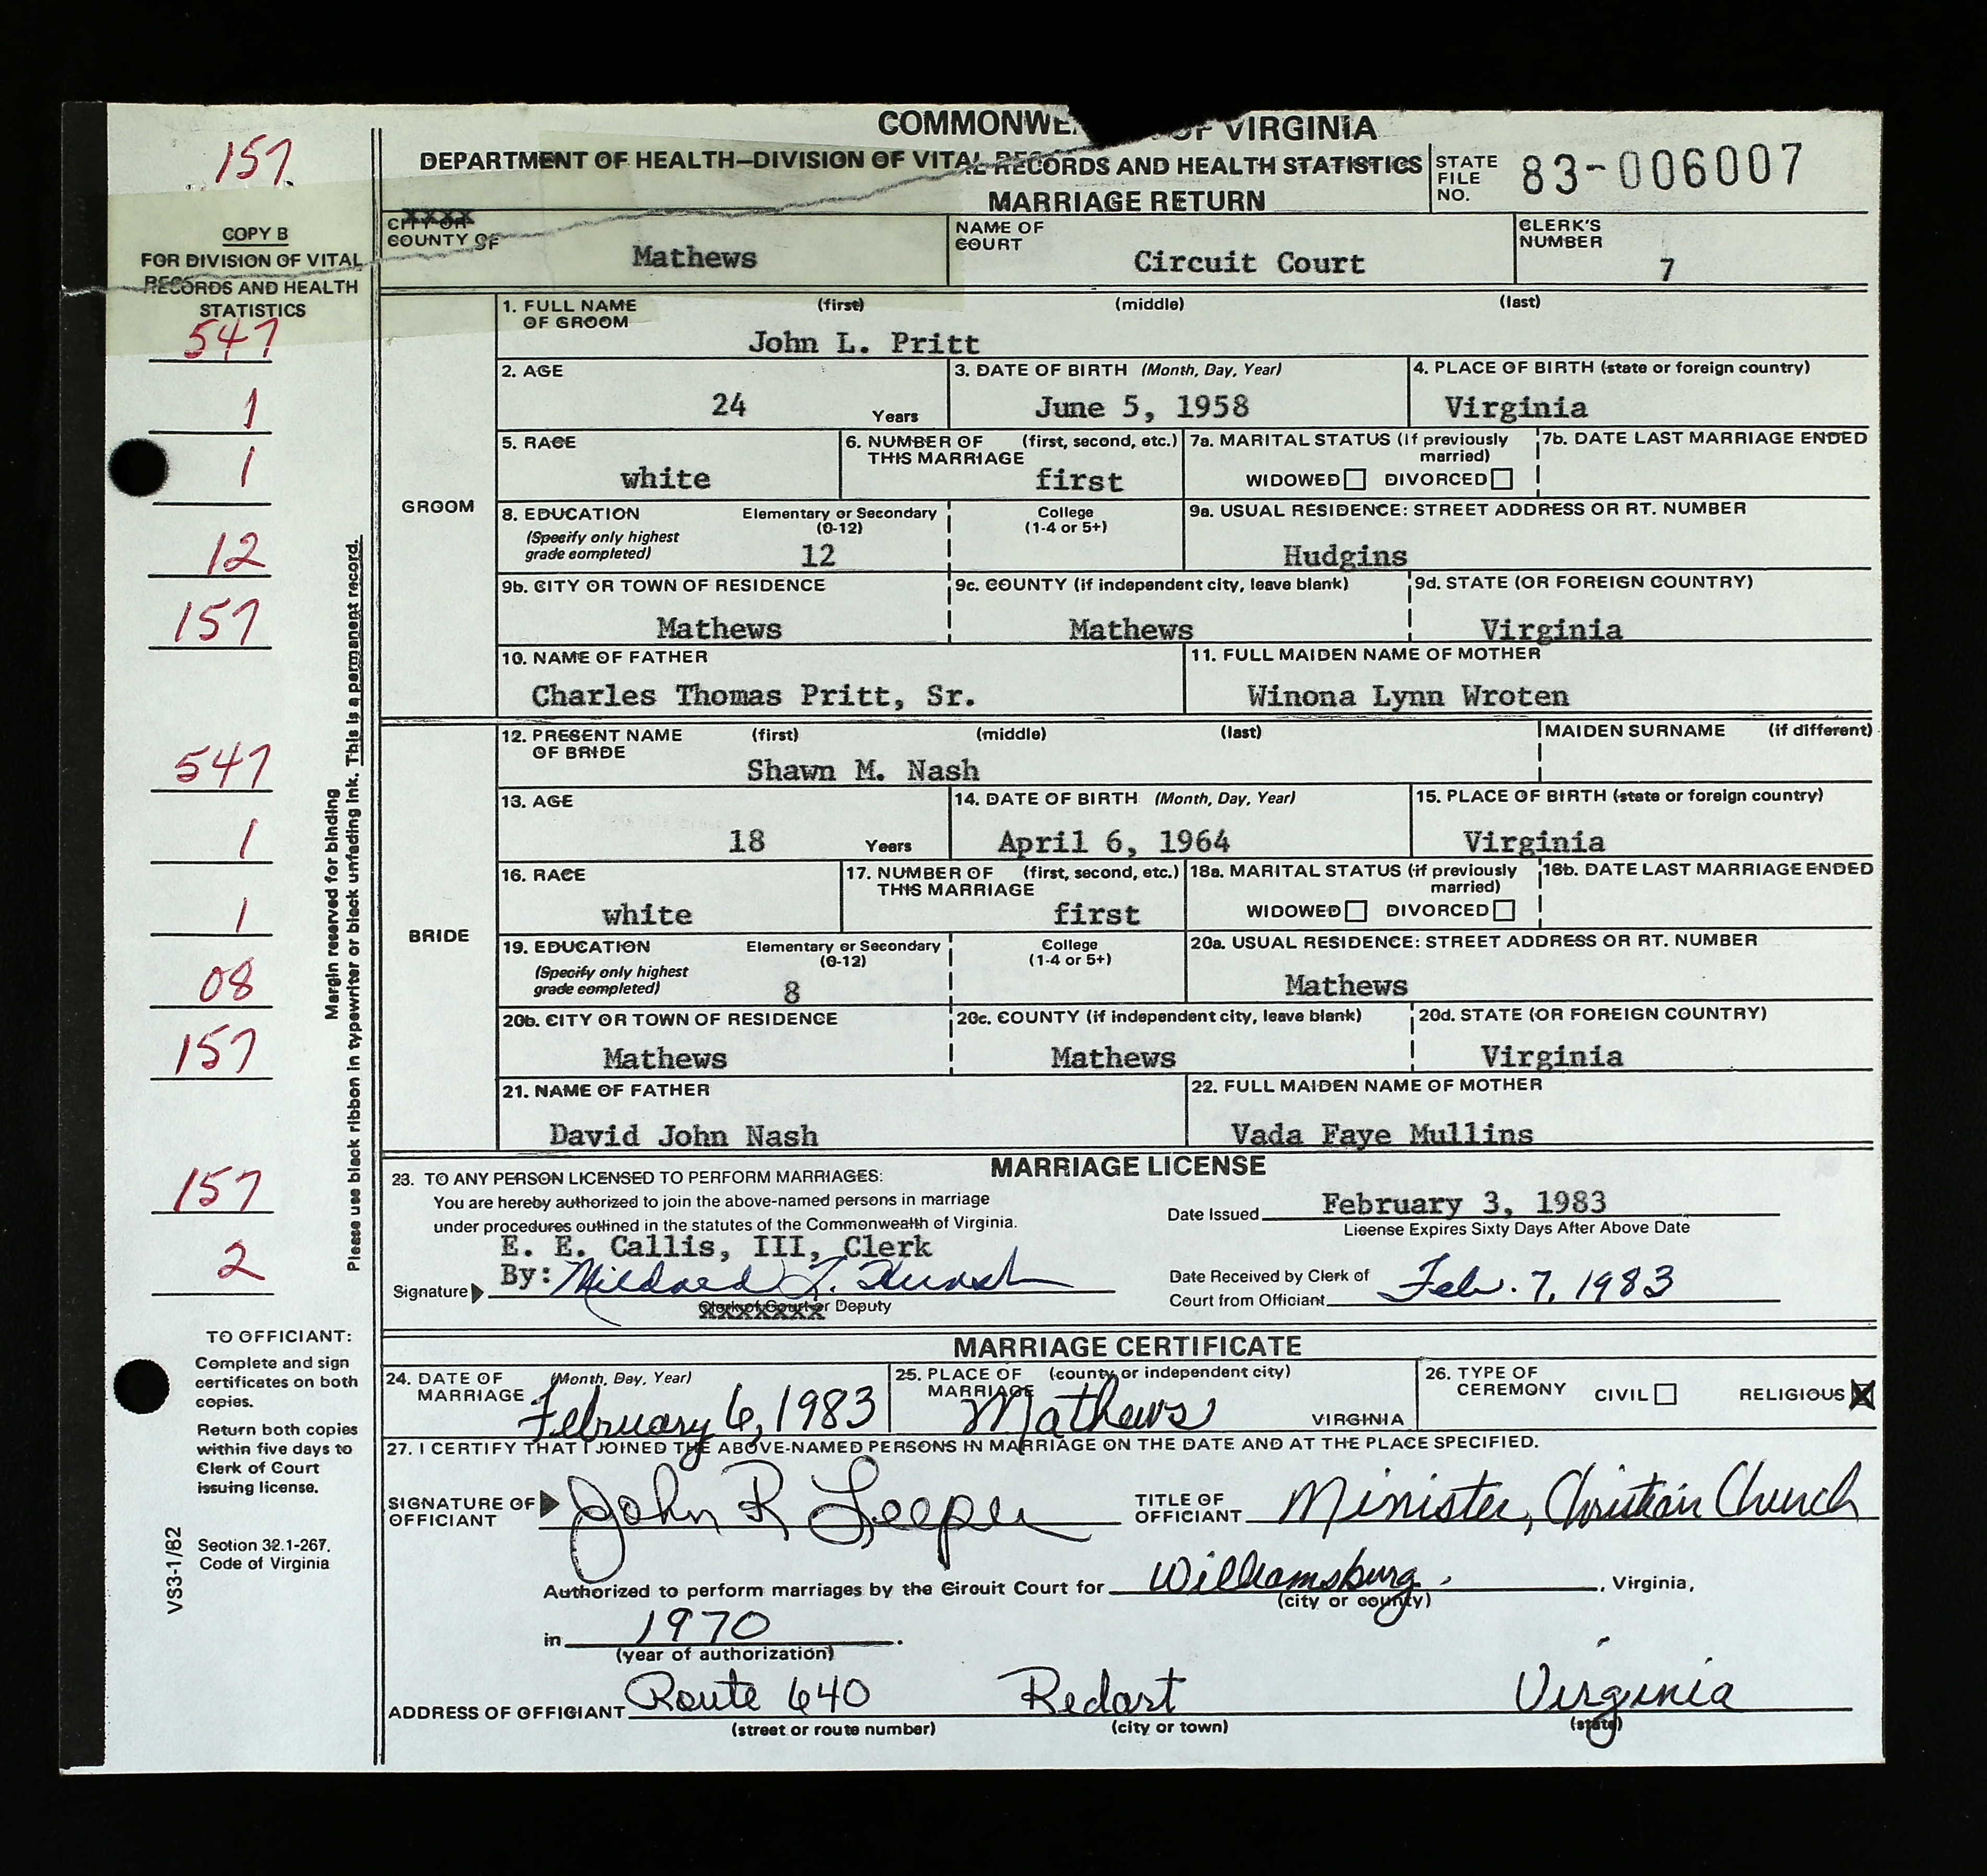 COMMONWE OF VIRGINIA
DEPARTMENT OF HEALTH—DIVISION OF VITAL RECORDS AND HEALTH STATISTICS
MARRIAGE RETURN
STATE FILE NO. 83-006007
157
COPY B
FOR DIVISION OF VITAL
RECORDS AND HEALTH
STATISTICS
547
1
1
12
157
547
1
1
08
157
157
2
Margin reserved for binding
Please use black ribbon in typewriter or black unfading ink. This is a permanent record.
TO OFFICIANT:
Complete and sign
certificates on both
copies.
Return both copies
within five days to
Clerk of Court
issuing license.
Section 32.1-267,
Code of Virginia
VS3-1/82
CITY OR XXXX
COUNTY OF Mathews
NAME OF COURT Circuit Court
CLERK'S NUMBER 7
GROOM
1. FULL NAME OF GROOM (first) (middle) (last)
John L. Pritt
2. AGE 24 Years
3. DATE OF BIRTH (Month, Day, Year) June 5, 1958
4. PLACE OF BIRTH (state or foreign country) Virginia
5. RACE white
6. NUMBER OF THIS MARRIAGE (first, second, etc.) first
7a. MARITAL STATUS (if previously married) WIDOWED DIVORCED
7b. DATE LAST MARRIAGE ENDED
8. EDUCATION (Specify only highest grade completed) Elementary or Secondary (0-12) 12
College (1-4 or 5+)
9a. USUAL RESIDENCE: STREET ADDRESS OR RT. NUMBER Hudgins
9b. CITY OR TOWN OF RESIDENCE Mathews
9c. COUNTY (if independent city, leave blank) Mathews
9d. STATE (OR FOREIGN COUNTRY) Virginia
10. NAME OF FATHER Charles Thomas Pritt, Sr.
11. FULL MAIDEN NAME OF MOTHER Winona Lynn Wroten
BRIDE
12. PRESENT NAME OF BRIDE (first) (middle) (last)
Shawn M. Nash
MAIDEN SURNAME (if different)
13. AGE 18 Years
14. DATE OF BIRTH (Month, Day, Year) April 6, 1964
15. PLACE OF BIRTH (state or foreign country) Virginia
16. RACE white
17. NUMBER OF THIS MARRIAGE (first, second, etc.) first
18a. MARITAL STATUS (if previously married) WIDOWED DIVORCED
18b. DATE LAST MARRIAGE ENDED
19. EDUCATION (Specify only highest grade completed) Elementary or Secondary (0-12) 8
College (1-4 or 5+)
20a. USUAL RESIDENCE: STREET ADDRESS OR RT. NUMBER Mathews
20b. CITY OR TOWN OF RESIDENCE Mathews
20c. COUNTY (if independent city, leave blank) Mathews
20d. STATE (OR FOREIGN COUNTRY) Virginia
21. NAME OF FATHER David John Nash
22. FULL MAIDEN NAME OF MOTHER Vada Faye Mullins
MARRIAGE LICENSE
23. TO ANY PERSON LICENSED TO PERFORM MARRIAGES:
You are hereby authorized to join the above-named persons in marriage
under procedures outlined in the statutes of the Commonwealth of Virginia.
Date Issued February 3, 1983
License Expires Sixty Days After Above Date
E. E. Callis, III, Clerk
Signature By: Mildred
Clerk of Court or Deputy
Date Received by Clerk of
Court from Officiant Feb. 7, 1983
MARRIAGE CERTIFICATE
24. DATE OF MARRIAGE (Month, Day, Year) February 6, 1983
25. PLACE OF MARRIAGE (county or independent city) Mathews VIRGINIA
26. TYPE OF CEREMONY CIVIL RELIGIOUS X
27. I CERTIFY THAT I JOINED THE ABOVE-NAMED PERSONS IN MARRIAGE ON THE DATE AND AT THE PLACE SPECIFIED.
SIGNATURE OF OFFICIANT John R Leeper
TITLE OF OFFICIANT Minister, Christian Church
Authorized to perform marriages by the Circuit Court for Williamsburg, Virginia,
(city or county)
in 1970.
(year of authorization)
ADDRESS OF OFFICIANT Route 640 Redart Virginia
(street or route number) (city or town) (state)